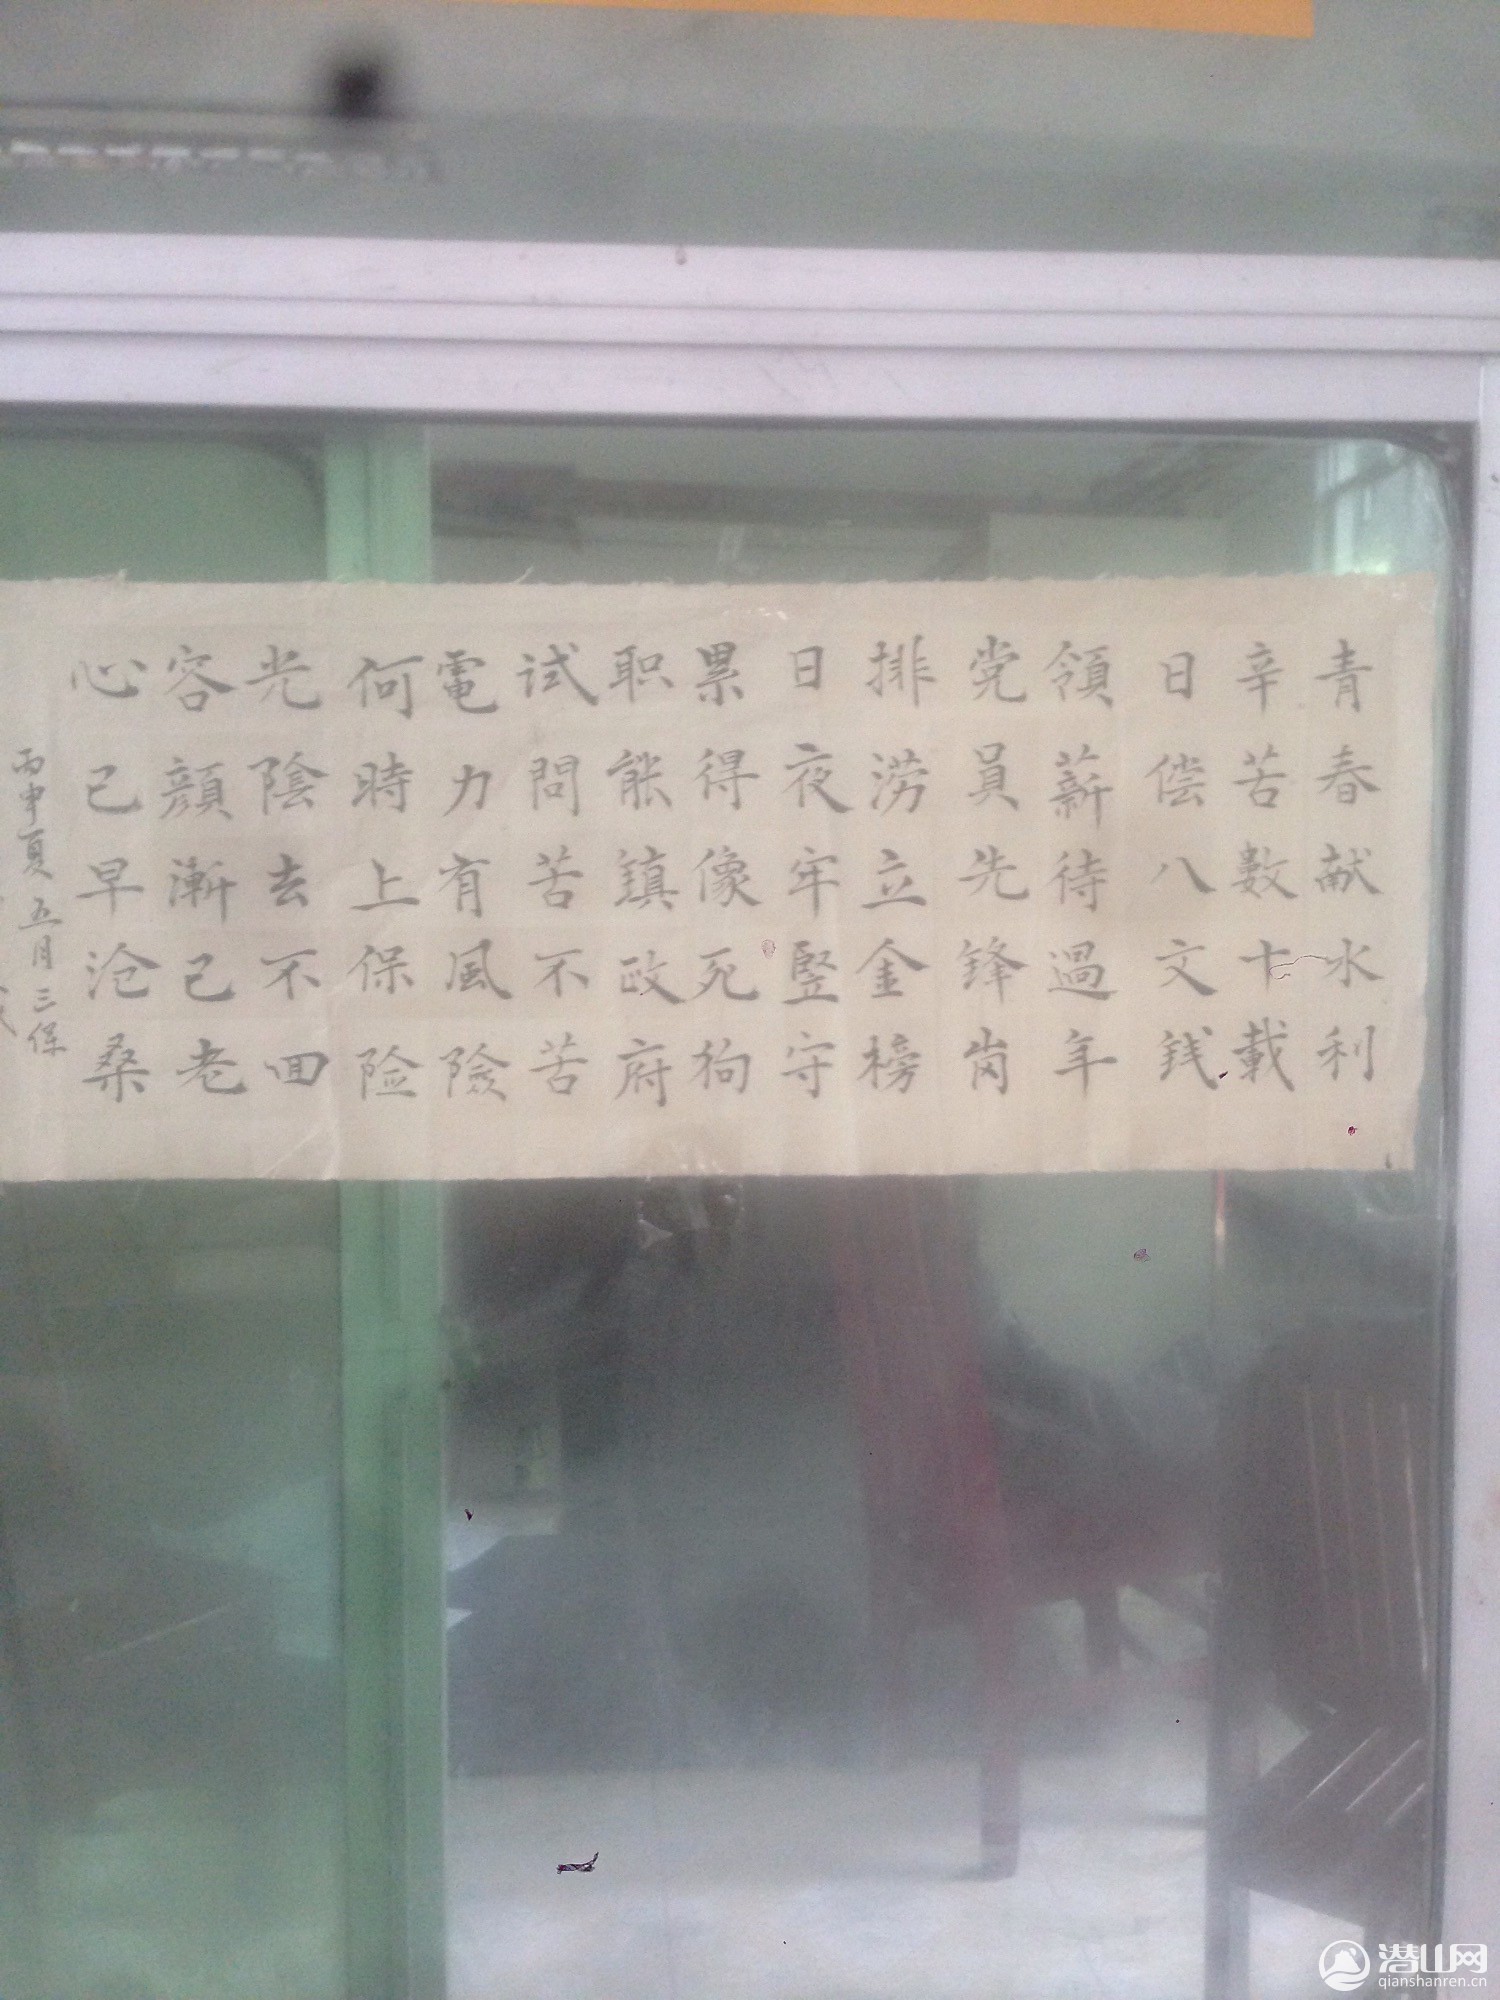 青春献水利
辛苦數十載
日偿八文钱
領薪待過年
党員先鋒岗
排涝立金榜
日夜牢竪守
累得像死狗
职能鎮政府
试問苦不苦
電力有風險
何時上保险
光陰去不回
容顔漸已老
心已早沧桑
丙申夏五月三保
潜山网
qianshanren.cn